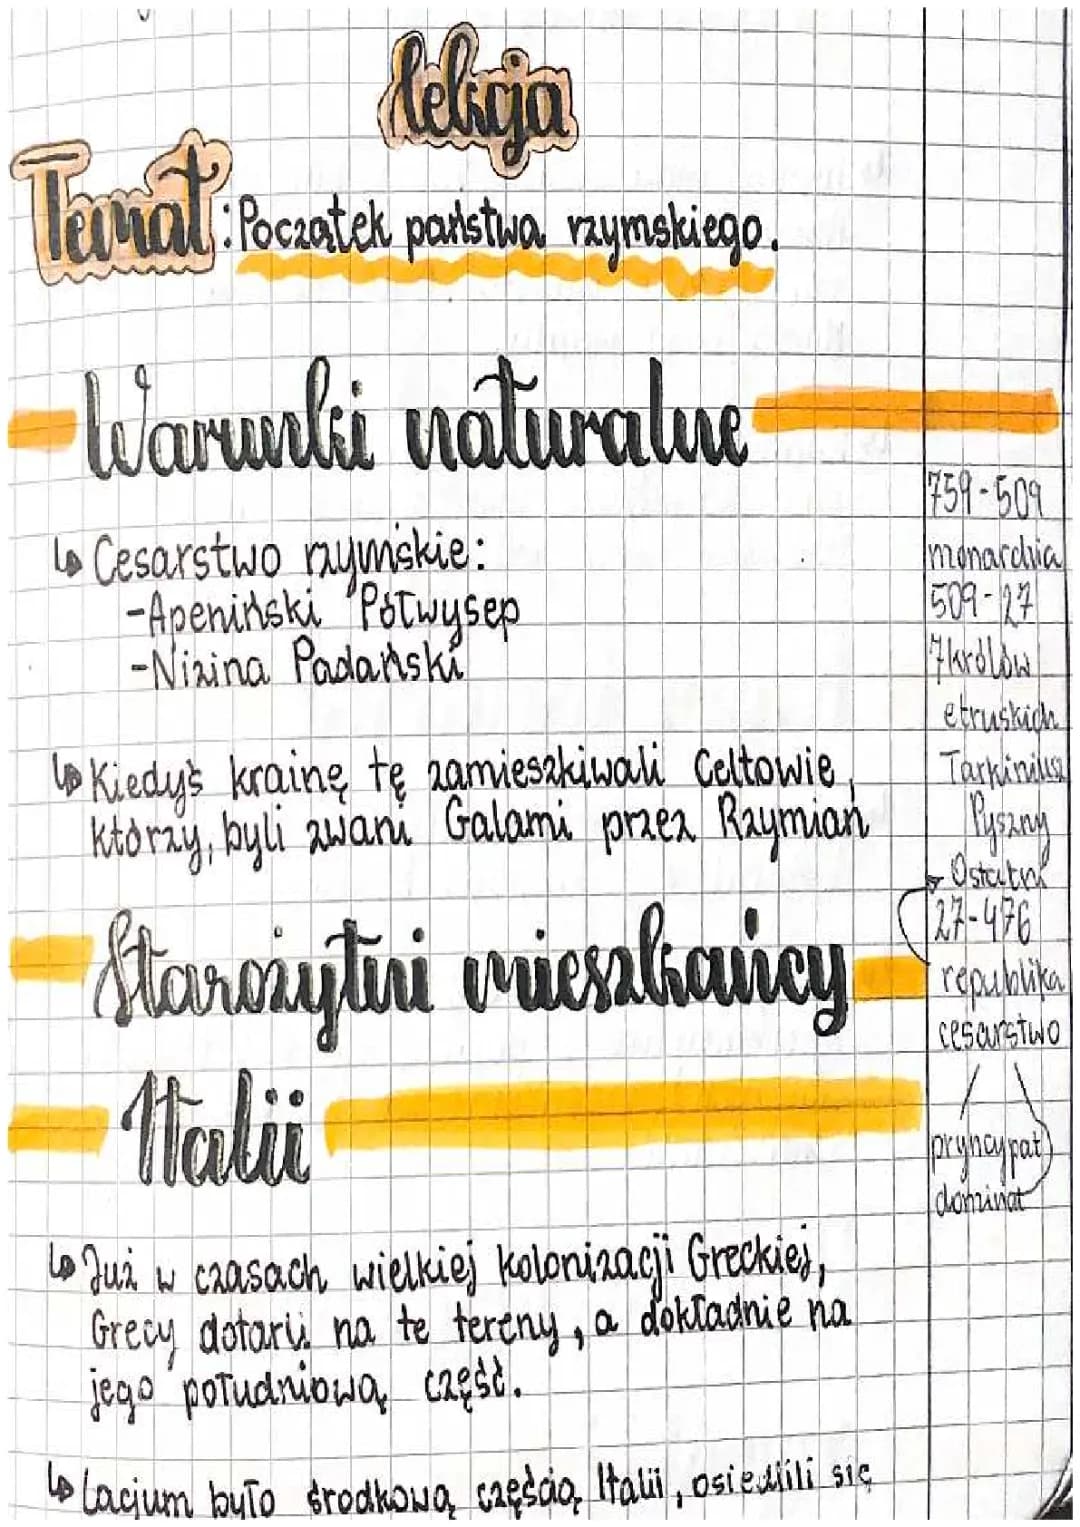 lekcja
Temat: Początek państwa rzymskiego.
Warunki naturalne
↳ Cesarstwo rzymskie:
-Apeniński Półwysep
-Nizina Padański
↳ Kiedyś krainę tę zamieszkiwali Celtowie,
którzy, byli zwani Galami przez Rzymian
Starożytni mieszkańcy
Italii
↳ Już w czasach wielkiej kolonizacji Greckiej,
Grecy dotarli na te tereny, a dokładnie na
jego południową część.
↳ Lacjum było środkową częścią Italii, osiedlili się
759-509
monarchia
509-27
7królów
etruskich
Tarkiniusz
Pyszny
Ostatni
27-476
republika
cesarstwo
pryncypat
dominat